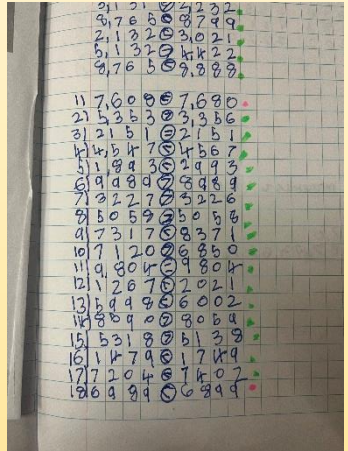 8,765 < 8,799
2,132 < 3,021
5,132 > 4,422
8,765 < 8,888
1) 7,608 7,680
2) 5,353 > 3,356
3) 2151 = 2151
4) 4,547 < 4567
5) 1,893 < 2993
6) 9989 > 8989
7) 3227 > 3226
8) 5058 = 5058
9) 7317 < 8371
10) 7120 > 6850
11) 9,804 = 9804
12) 1267 < 2021
13) 5998 < 6002
14) 8090 > 8059
15) 5318 > 5138
16) 1479 < 1749
17) 7204 < 7402
18) 6989 < 6899